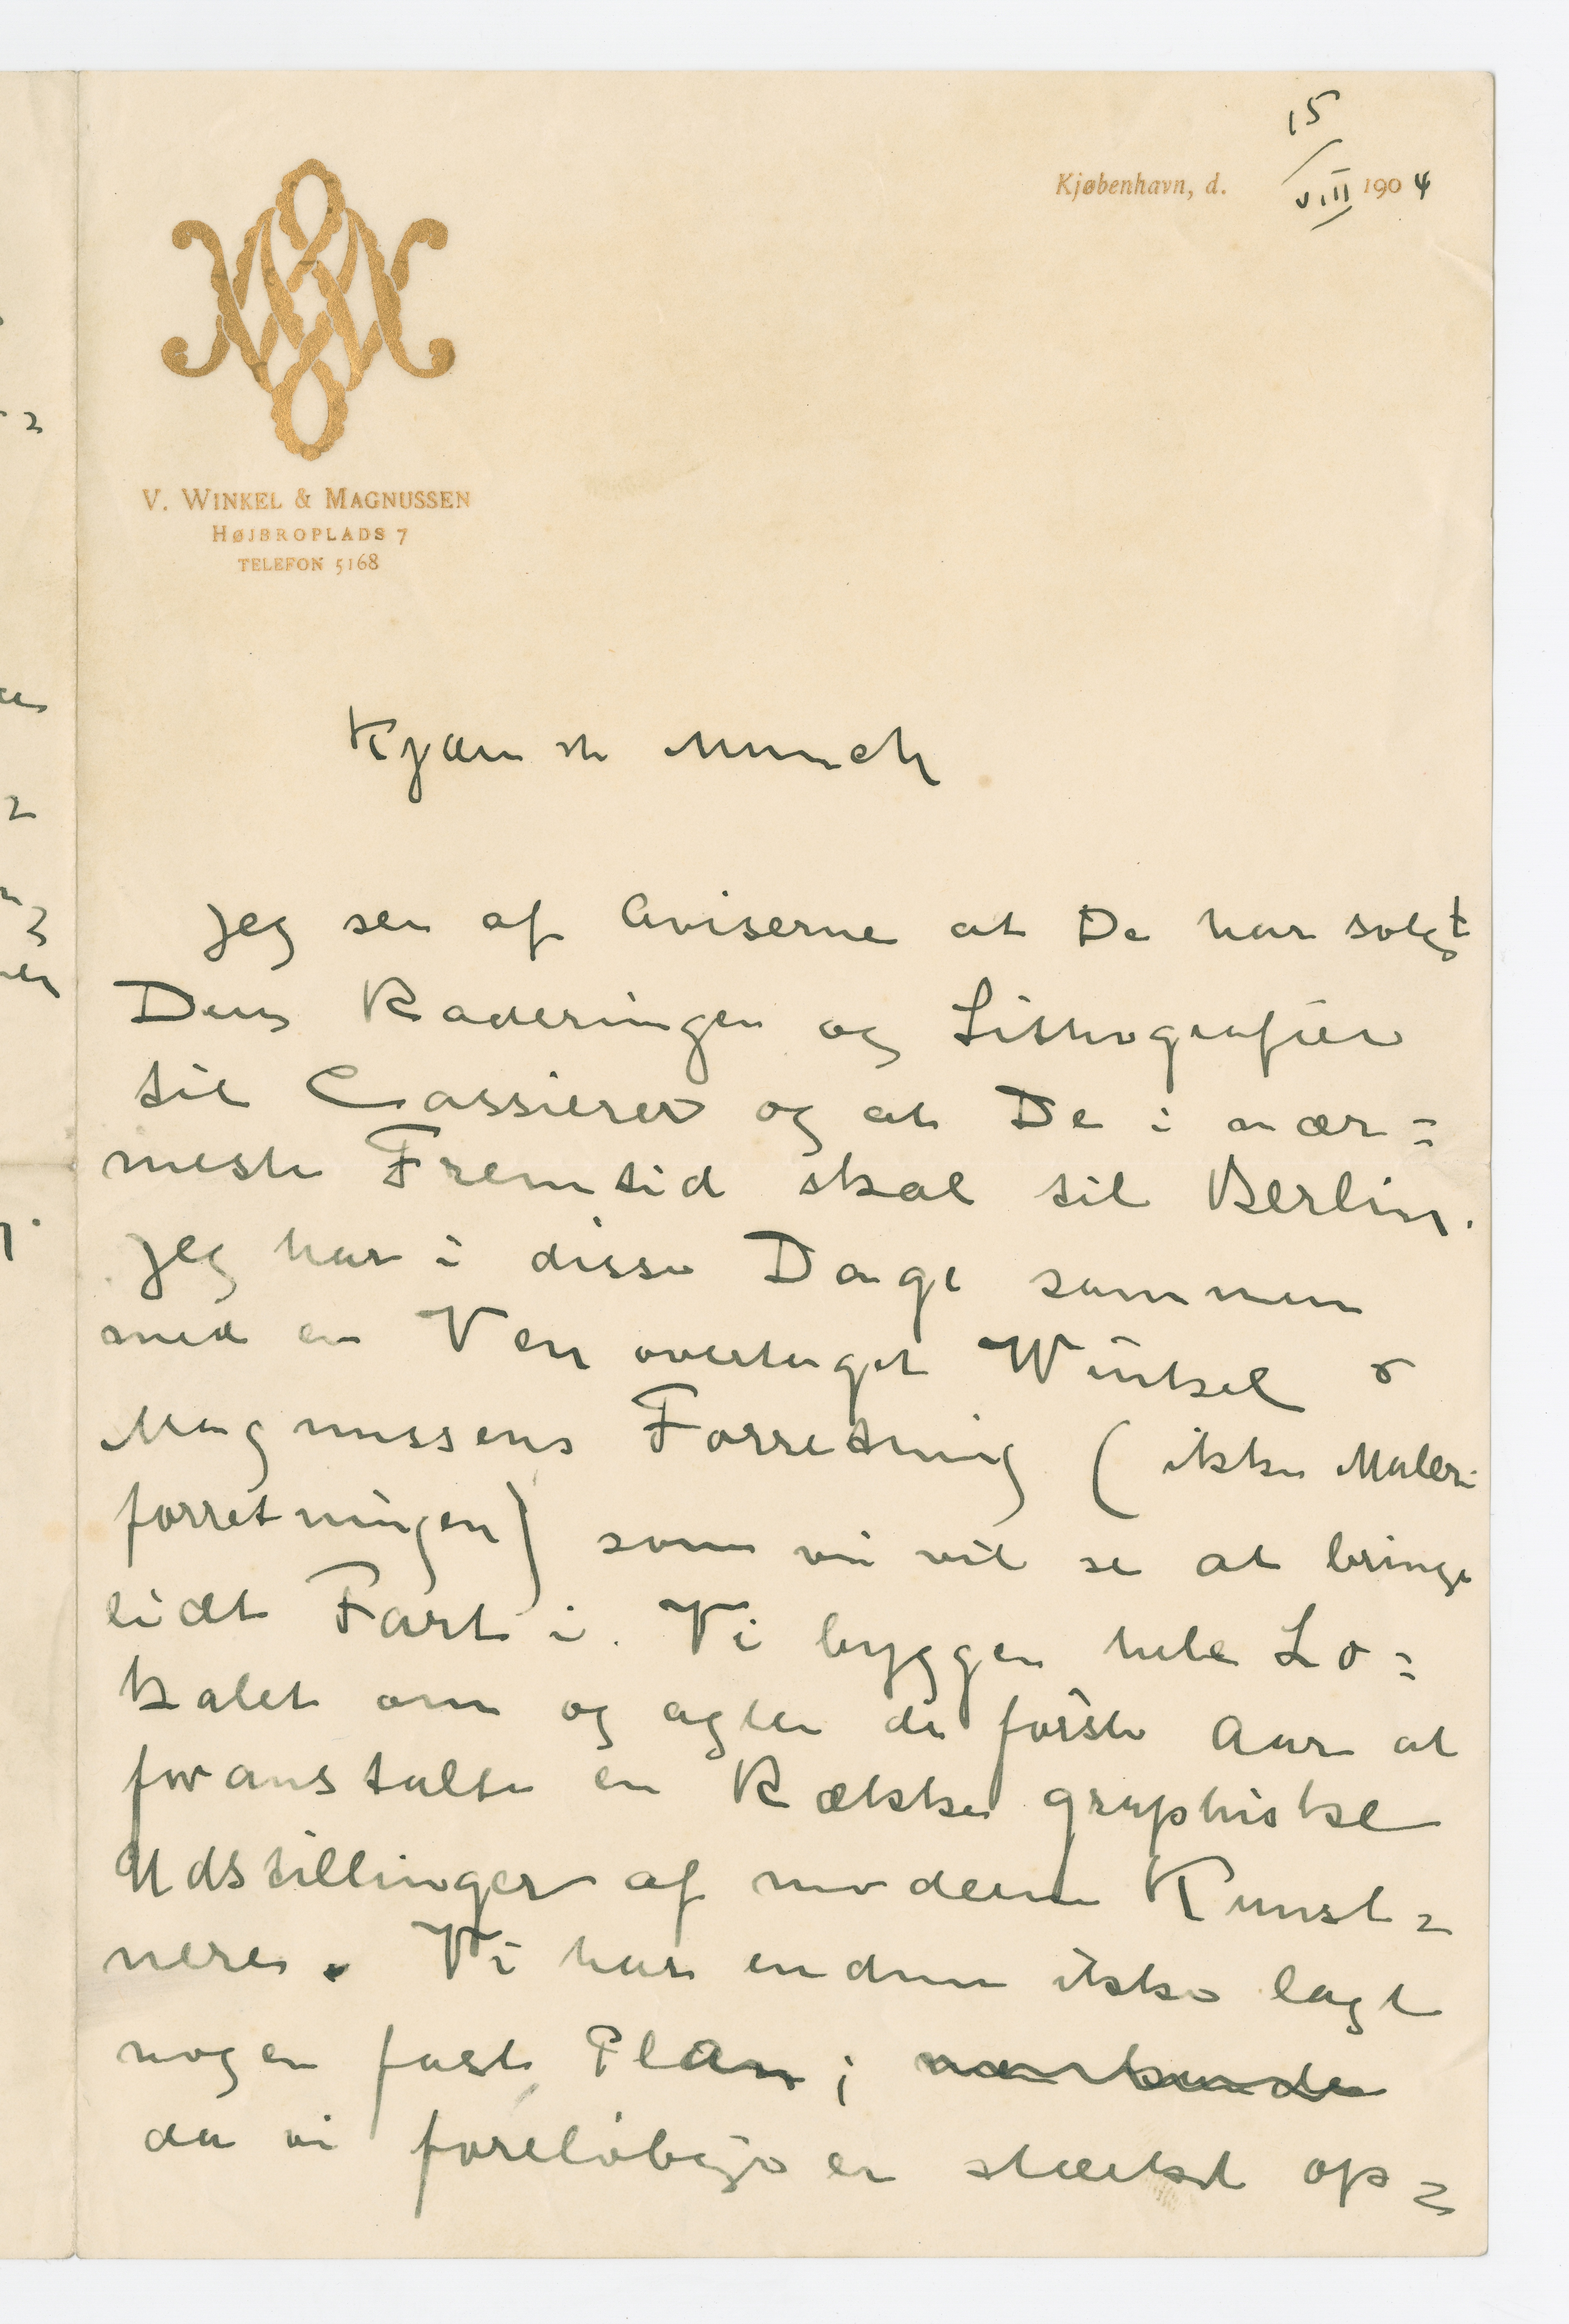 15/VIII
Kjøbenhavn, d. 1904
V. WINKEL & MAGNUSSEN
HØJBROPLADS 7
TELEFON 5168
Kjære Munch
Jeg ser af Aviserne at De har solgt
Deres Raderinger og Lithografier
til Cassierer og at De i nær=
meste Fremtid skal til Berlin.
Jeg har i disse Dage sammen
med en Ven overtaget Winkel &
Magnussens Forretning (ikke Maleri
forretningen) som vi vil se at bringe
lidt Fart i. Vi bygger hele Lo=
kalet om og agter de første Aar at
foranstalte en Række graphiske
Udstillinger af moderne Kunst=
nere. Vi har endnu ikke lagt
nogen fast Plan;
da vi foreløbig er stærkt op=